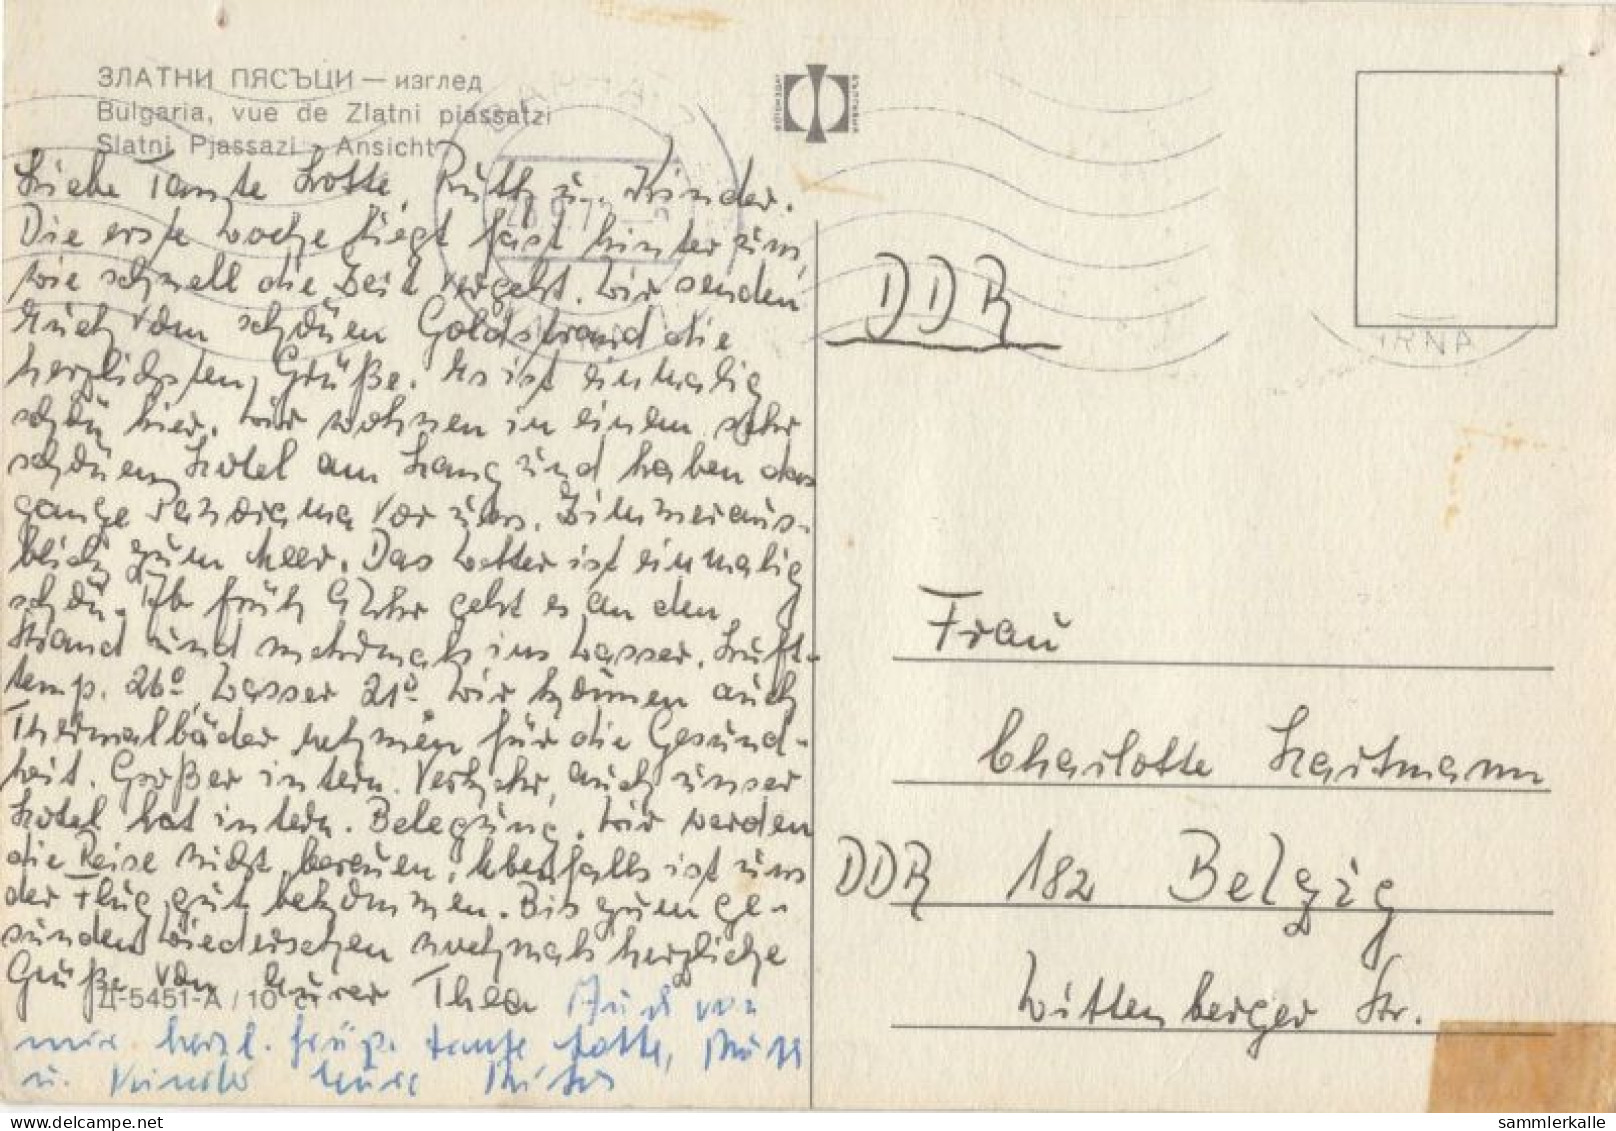 ЗЛАТНИ ПЯСЪЦИ — изглед
Bulgaria, vue de Zlatni piassatzi
Slatni Pjassazi - Ansicht
Liebe Tante Lotte, Ruth u. Kinder.
Die erste Woche liegt fast hinter uns,
wie schnell die Zeit vergeht. Wir senden
Euch vom schönen Goldstrand die
herzlichsten Grüße. Es ist einmalig
schön hier. Wir wohnen in einem sehr
schönen Hotel am Hang und haben das
ganze Panorama vor uns. Zimmeraus-
blick zum Meer. Das Wetter ist einmalig
schön. Ab früh 9 Uhr geht es an den
Strand und mehrmals ins Wasser. Luft-
temp. 26° Wasser 21°. Wir können auch
Thermalbäder nehmen für die Gesund-
heit. Großer intern. Verkehr, auch unser
Hotel hat intern. Belegung. Wir werden
die Reise nicht bereuen. Ebenfalls ist uns
der Flug gut bekommen. Bis zum ge-
sunden Wiedersehen nochmals herzliche
Grüße von Eurer Thea Auch von
mir herzl. Grüße Tante Lotte, Ruth
u. Kinder Eure
Д-5451-А / 10
DDR
IRNA
Frau
Charlotte Hartmann
DDR 182 Belzig
Wittenberger Str.
sammlerkalle